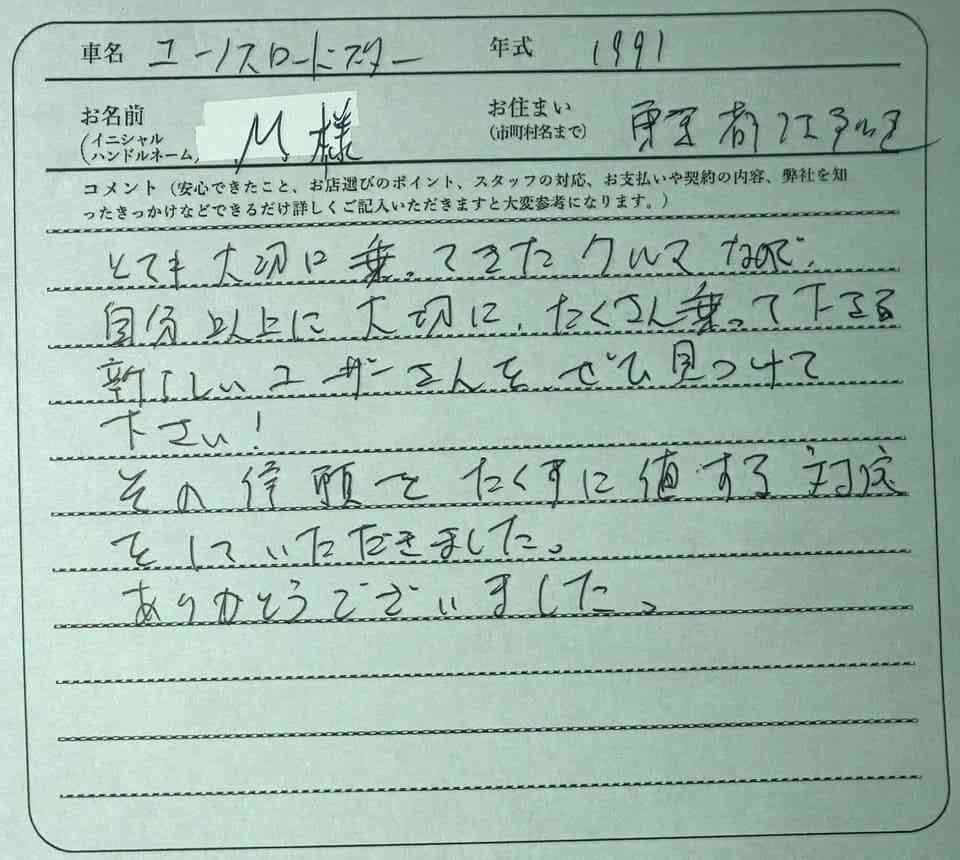 車名 ユーノスロードスター 年式 1991
お名前 (イニシャル ハンドルネーム) M様 お住まい (市町村名まで) 東京都江戸川区
コメント（安心できたこと、お店選びのポイント、スタッフの対応、お支払いや契約の内容、弊社を知
ったきっかけなどできるだけ詳しくご記入いただきますと大変参考になります。）
とても大切に乗ってきたクルマなので、
自分以上に大切に、たくさん乗って下さる
新しいユーザーさんを、ぜひ見つけて
下さい！
その信頼をたくすに値する対応
をしていただきました。
ありがとうございました。